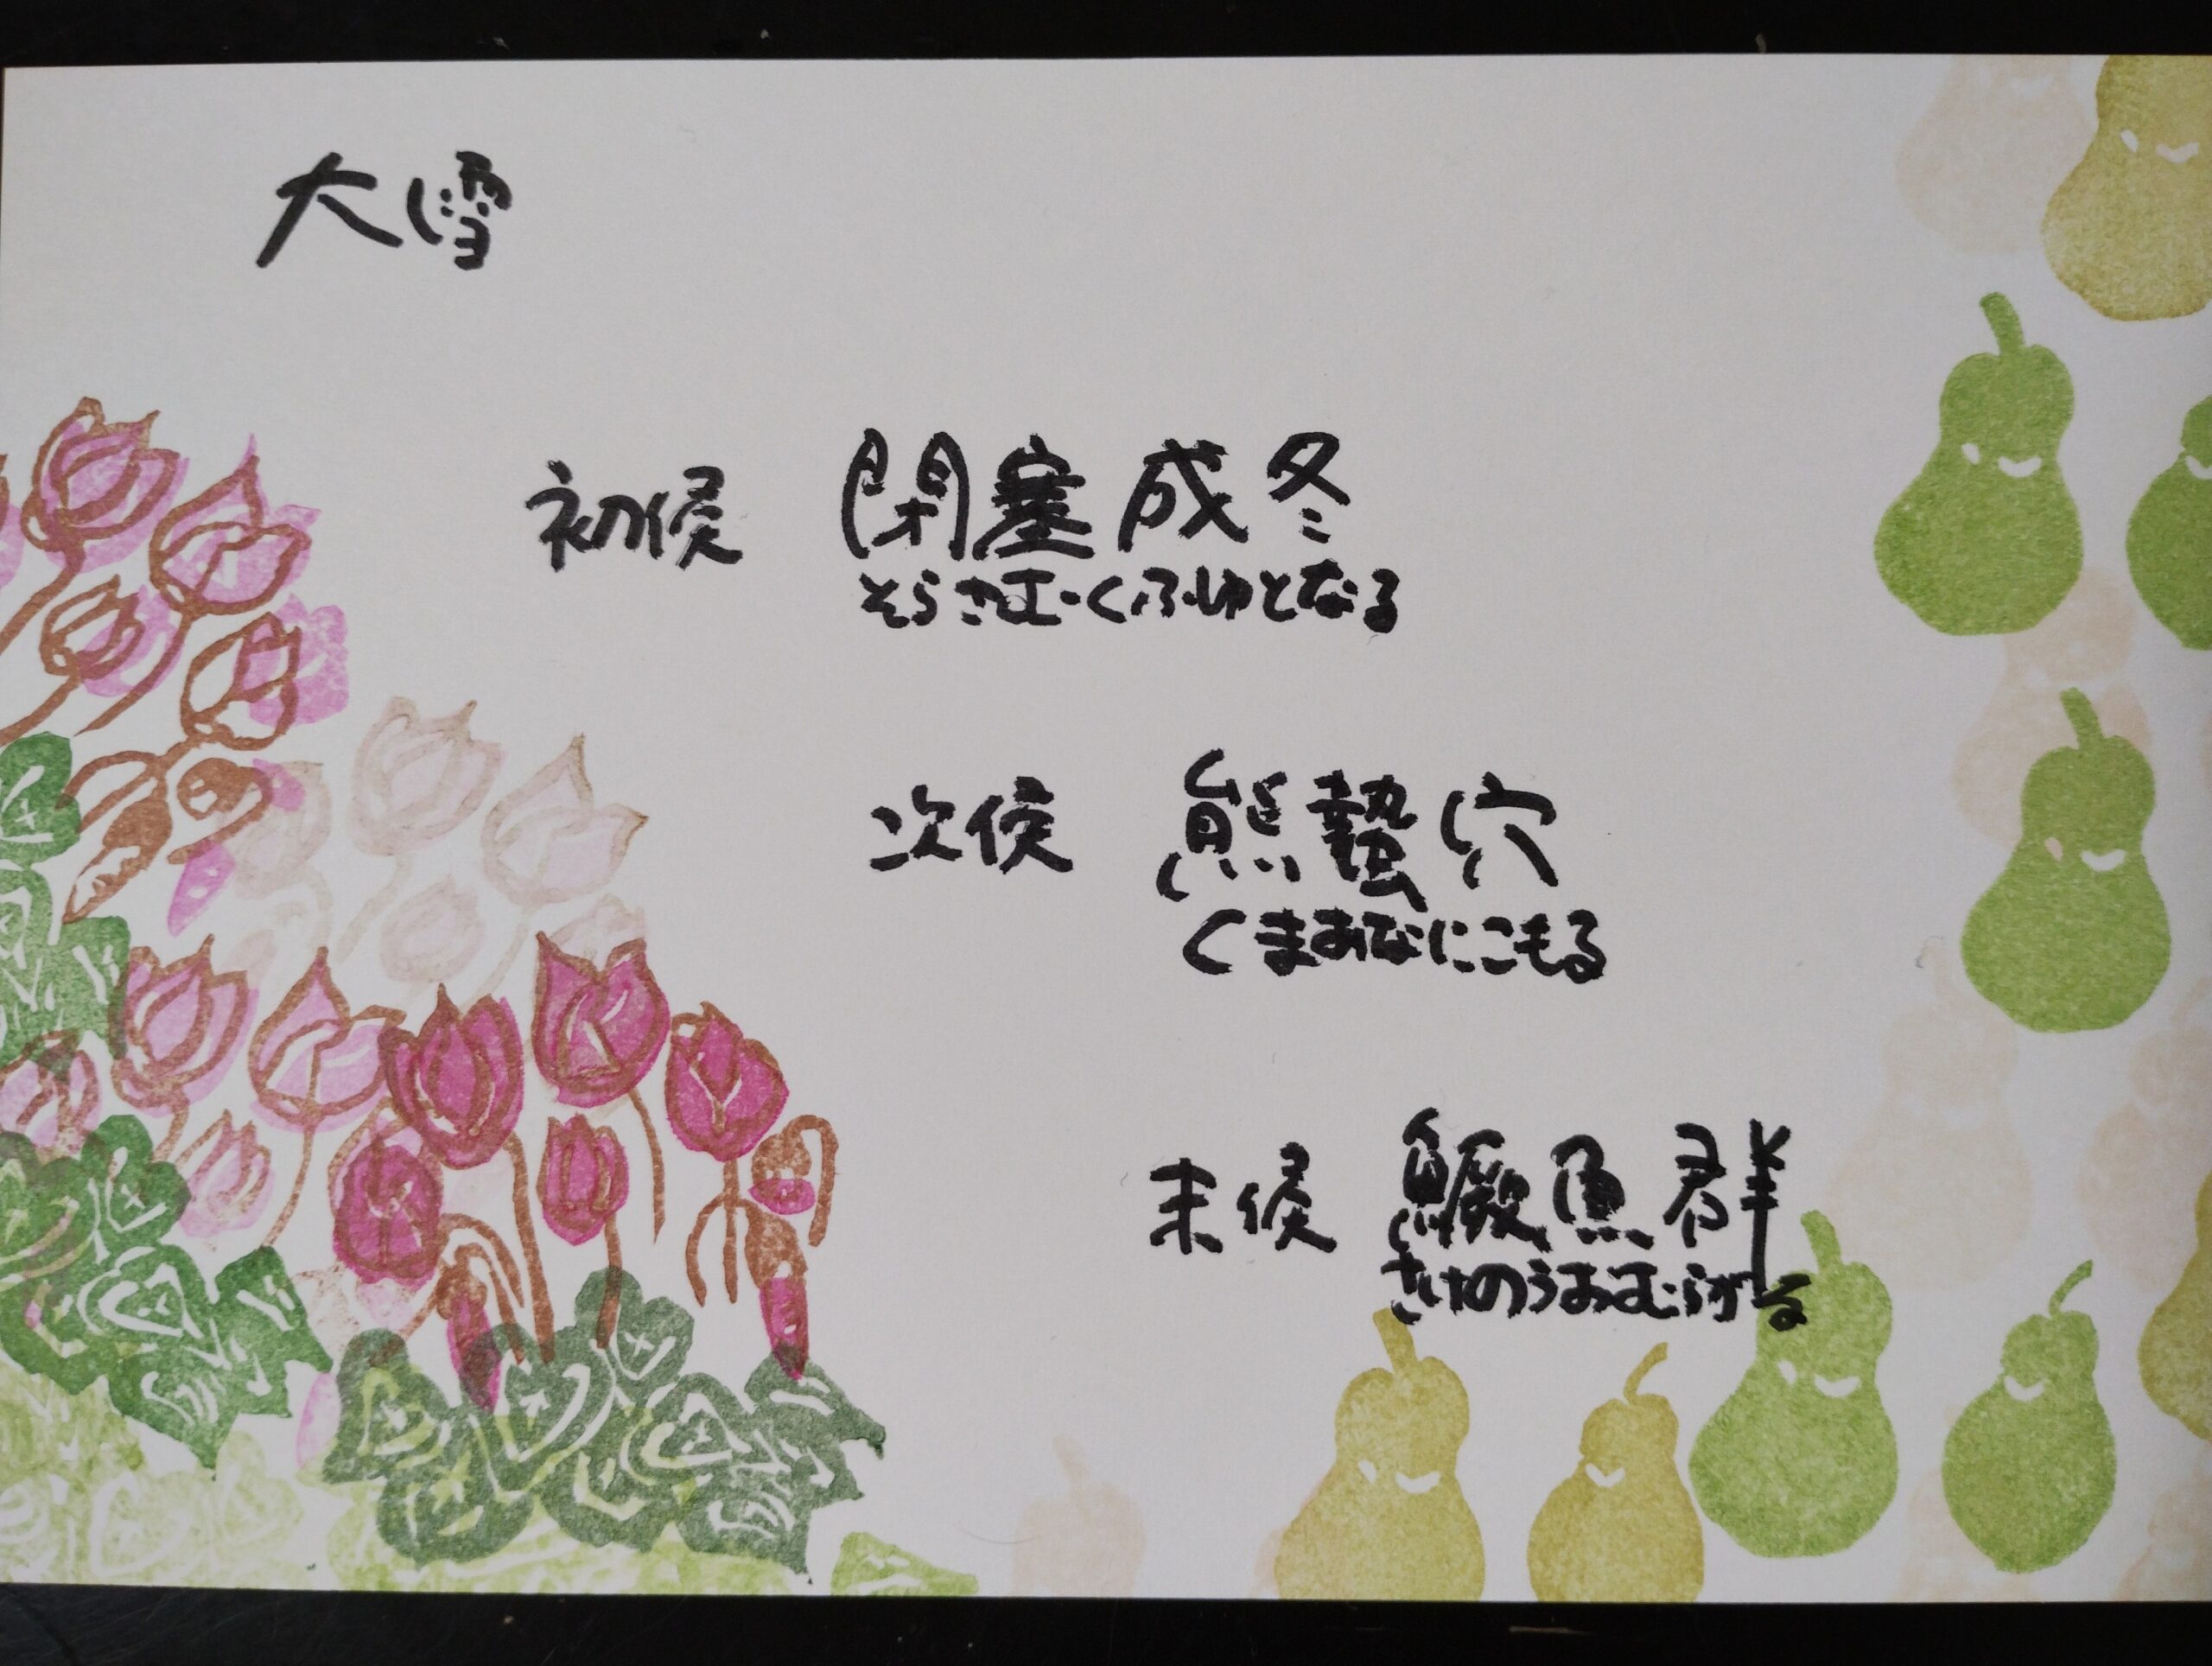 大雪
初候 閉塞成冬
そらさむくふゆとなる
次候 熊蟄穴
くまあなにこもる
末候 鱖魚群
さけのうおむらがる